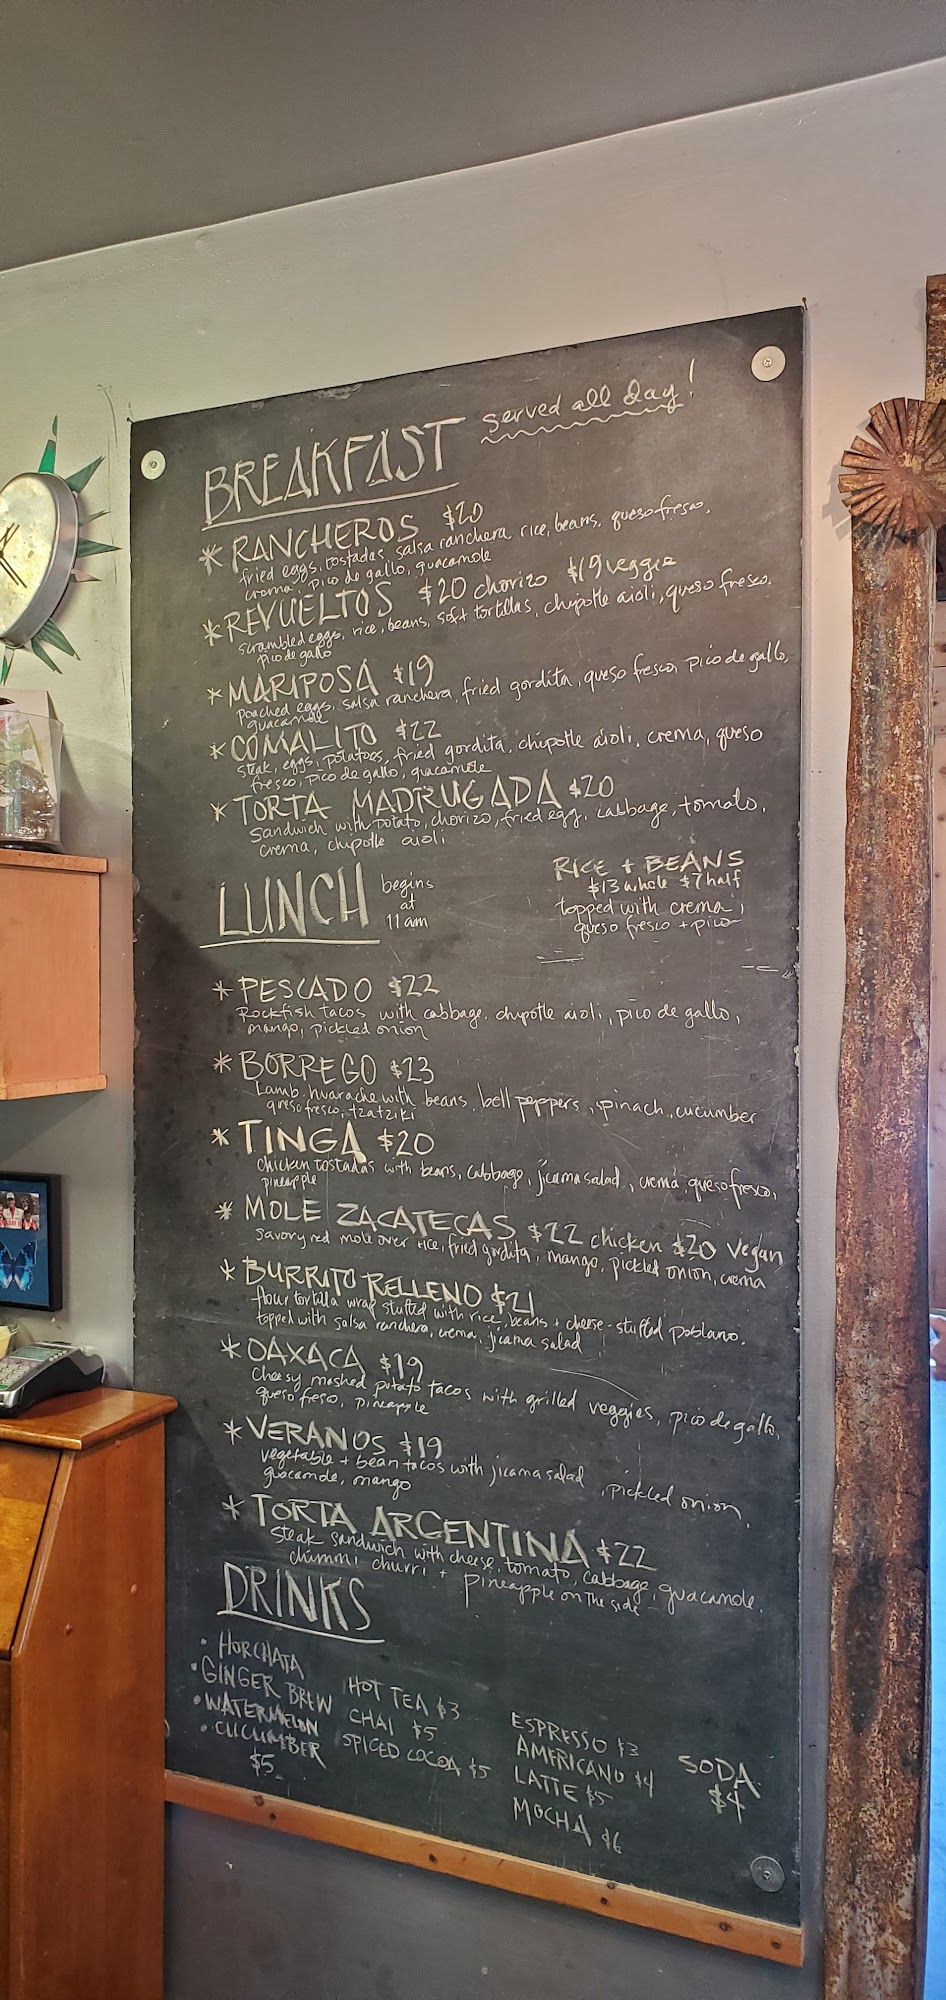 BREAKFAST served all day!
* RANCHEROS $20
fried eggs, tostadas, salsa ranchera, rice, beans, queso fresco,
crema, pico de gallo, guacamole
* REVUELTOS $20 chorizo $19 veggie
scrambled eggs, rice, beans, soft tortillas, chipotle aioli, queso fresco,
pico de gallo
* MARIPOSA $19
poached eggs, salsa ranchera, fried gordita, queso fresco, pico de gallo,
guacamole
* COMALITO $22
steak, eggs, potatoes, fried gordita, chipotle aioli, crema, queso
fresco, pico de gallo, guacamole
* TORTA MADRUGADA $20
sandwich with potato, chorizo, fried egg, cabbage, tomato,
crema, chipotle aioli
RICE + BEANS
$13 whole $7 half
topped with crema,
queso fresco + pico
LUNCH begins
at
11am
* PESCADO $22
Rockfish tacos with cabbage, chipotle aioli, pico de gallo,
mango, pickled onion
* BORREGO $23
Lamb huarache with beans, bell peppers, spinach, cucumber
queso fresco, tzatziki
* TINGA $20
chicken tostadas with beans, cabbage, jicama salad, crema queso fresco,
pineapple
* MOLE ZACATECAS $22 chicken $20 vegan
savory red mole over rice, fried gordita, mango, pickled onion, crema
* BURRITO RELLENO $21
flour tortilla wrap stuffed with rice, beans + cheese-stuffed poblano,
topped with salsa ranchera, crema, jicama salad
* OAXACA $19
cheesy mashed potato tacos with grilled veggies, pico de gallo,
queso freso, pineapple
* VERANOS $19
vegetable + bean tacos with jicama salad, pickled onion,
guacamole, mango
* TORTA ARGENTINA $22
steak sandwich with cheese, tomato, cabbage, guacamole,
chimmi churri + pineapple on the side
DRINKS
• HORCHATA
• GINGER BREW
• WATERMELON
• CUCUMBER
$5
HOT TEA $3
CHAI $5
SPICED COCOA $5
ESPRESSO $3
AMERICANO $4
LATTE $5
MOCHA $6
SODA
$4